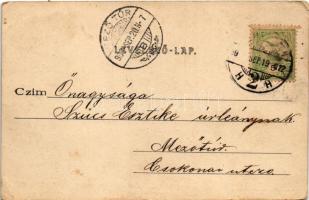 MEZŐTÚR
LEVELEZŐ-LAP.
Czim Őnagysága
Szücs Esztike úrleánynak
Mezőtúr.
Csokonai utcza.